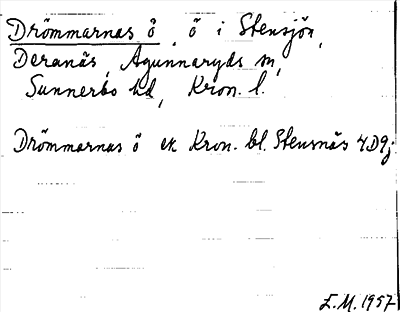 Drömmarnas ö, ö i Stensjön,
Deranäs, Agunnaryds sn,
Sunnerbo hd, Kron. l.
Drömmarnas ö ek Kron. bl. Stensnäs 4D9j
E.M. 1957